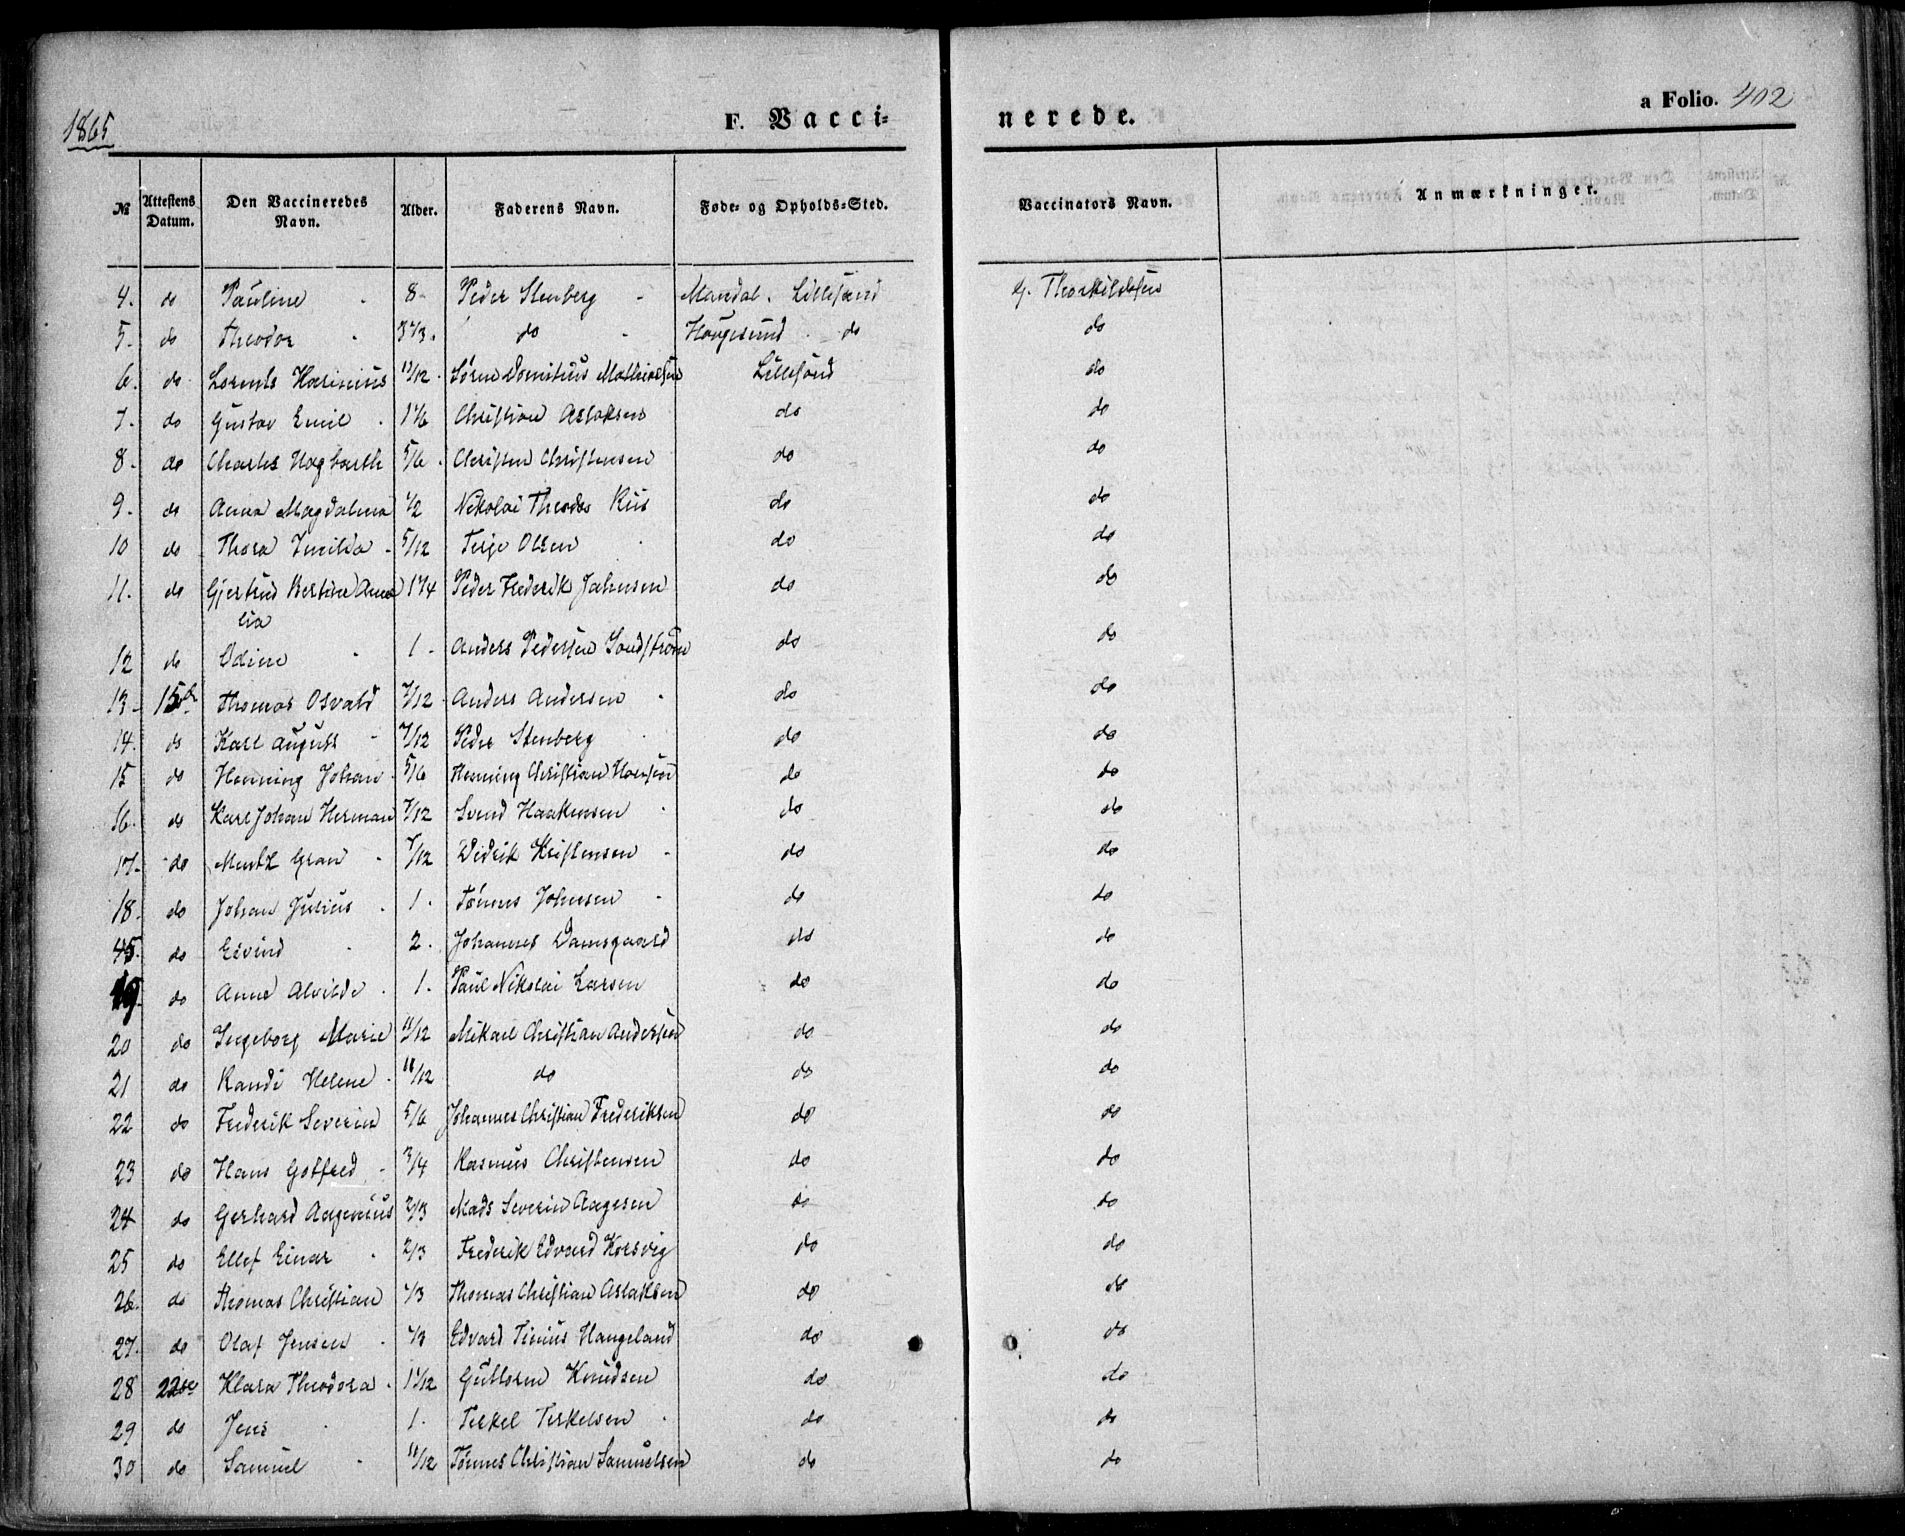 1865
F. Vacci= nerede.
a Folio. 402
№ Attestens Datum. Den Vaccineredes Navn. Alder. Faderens Navn. Føde- og Opholds-Sted. Vaccinators Navn. Anmærkninger.
4. do Pauline 8 Peder Stenberg Mandal. Lillesand G. Thorkildsen
5. do Theodor do Haugesund do do
6. do Lorents Harinius 11/12 Søren Domitius Mathiesen Lillesand do
7. do Gustav Emil 1 1/6 Christian Aslaksen do do
8. do Charles Hagbarth 5/6 Christen Christensen do do
9. do Anna Magdalena 1/2 Nikolai Theodor Riis do do
10 do Thora 5/12 Terje Olsen do do
11. do Gjertrud Bertine Ama lia 1 1/4 Peder Frederik Johnsen do do
12 do Odine 1 Anders Pedersen Sondstrøm do do
13 15de Thomas Osvald 7/12 Anders Andersen do do
14. do Karl August 7/12 Peder Stenberg do do
15 do Henning Johan 5/6 Henning Christian Hansen do do
16. do Karl Johan Herman 7/12 Svend Haakensen do do
17. do Mentz Gran 7/12 Didrik Kristensen do do
18. do Johan Julius 1. Tønnes Johnsen do do
45. do Eivind 2. Johannes Damsgaard do do
19. do Anne Alvilde 1. Paul Nikolai Larsen do do
20 do Ingeborg Marie 11/12 Mikael Christian Andersen do do
21 do Randi Helene 11/12 do do do
22 do Frederik Severin 5/6 Johannes Christian Frederiksen do do
23 do Hans Gotfred 3/4 Rasmus Christensen do do
24 do Gerhard Aagenius 2/3 Mads Severin Aagesen do do
25 do Ellef Einar 2/3 Frederik Edvard Korsvig do do
26. do Thomas Christian 1/3 Thomas Christian Aslaksen do do
27. do Olaf Jensen 1/3 Edvard Tinius Haugeland do do
28 22de Klara Theodora 1 1/12 Guttorm Knudsen do do
29 do Jens 1. Terkel Terkelsen do do
30 do Samuel 11/12 Tønnes Christian Samuelsen do do